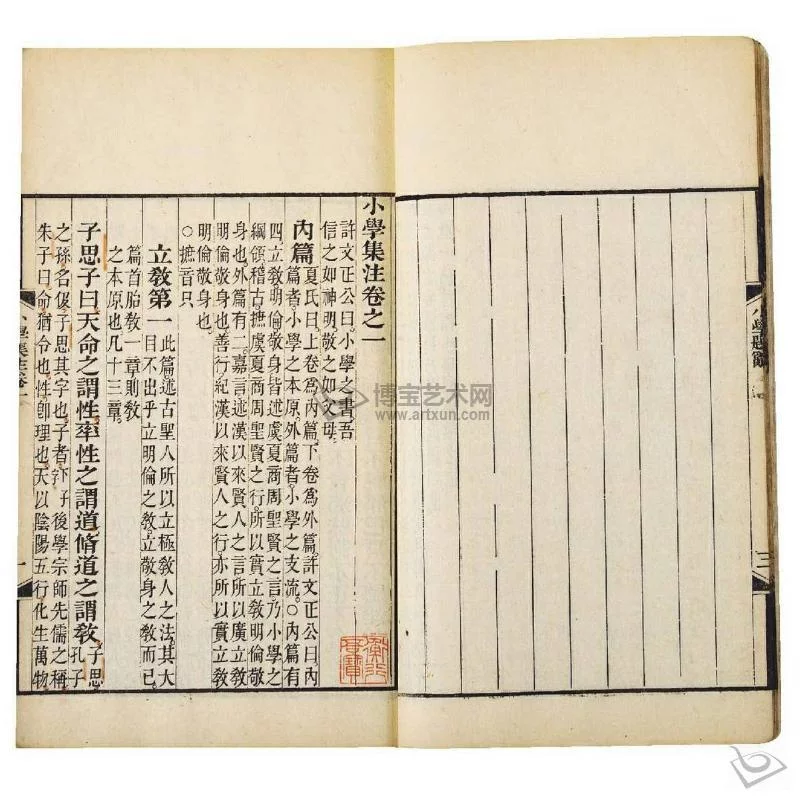 小學題辭
三
小學集注卷之一
許文正公曰。小學之書吾
信之如神明敬之如父母。
內篇 夏氏曰上卷爲內篇。下卷爲外篇。許文正公曰內
篇者。小學之本原。外篇者。小學之支流。○內篇有
四立敎明倫敬身皆述虞夏商周聖賢之言。乃小學之
綱領稽古。摭虞夏商周聖賢之行。所以實立敎明倫敬
身也。外篇有二。嘉言述漢以來賢人之言所以廣立敎
明倫敬身也。善行紀漢以來賢人之行亦所以實立敎
明倫敬身也。
○摭音只
立敎第一 此篇述古聖人所以立極敎人之法。其大
目不出乎立明倫之敎。立敬身之敎而已。
篇首胎敎一章則敎
之本原也凡十三章。
子思子曰天命之謂性。率性之謂道。脩道之謂敎 子思孔子
之孫名伋。子思其字也。子者下子字後學宗師先儒之稱
朱子曰。命猶令也。性卽理也。天以陰陽五行化生萬物
小學集注卷一
一
博宝艺术网
www.artxun.com